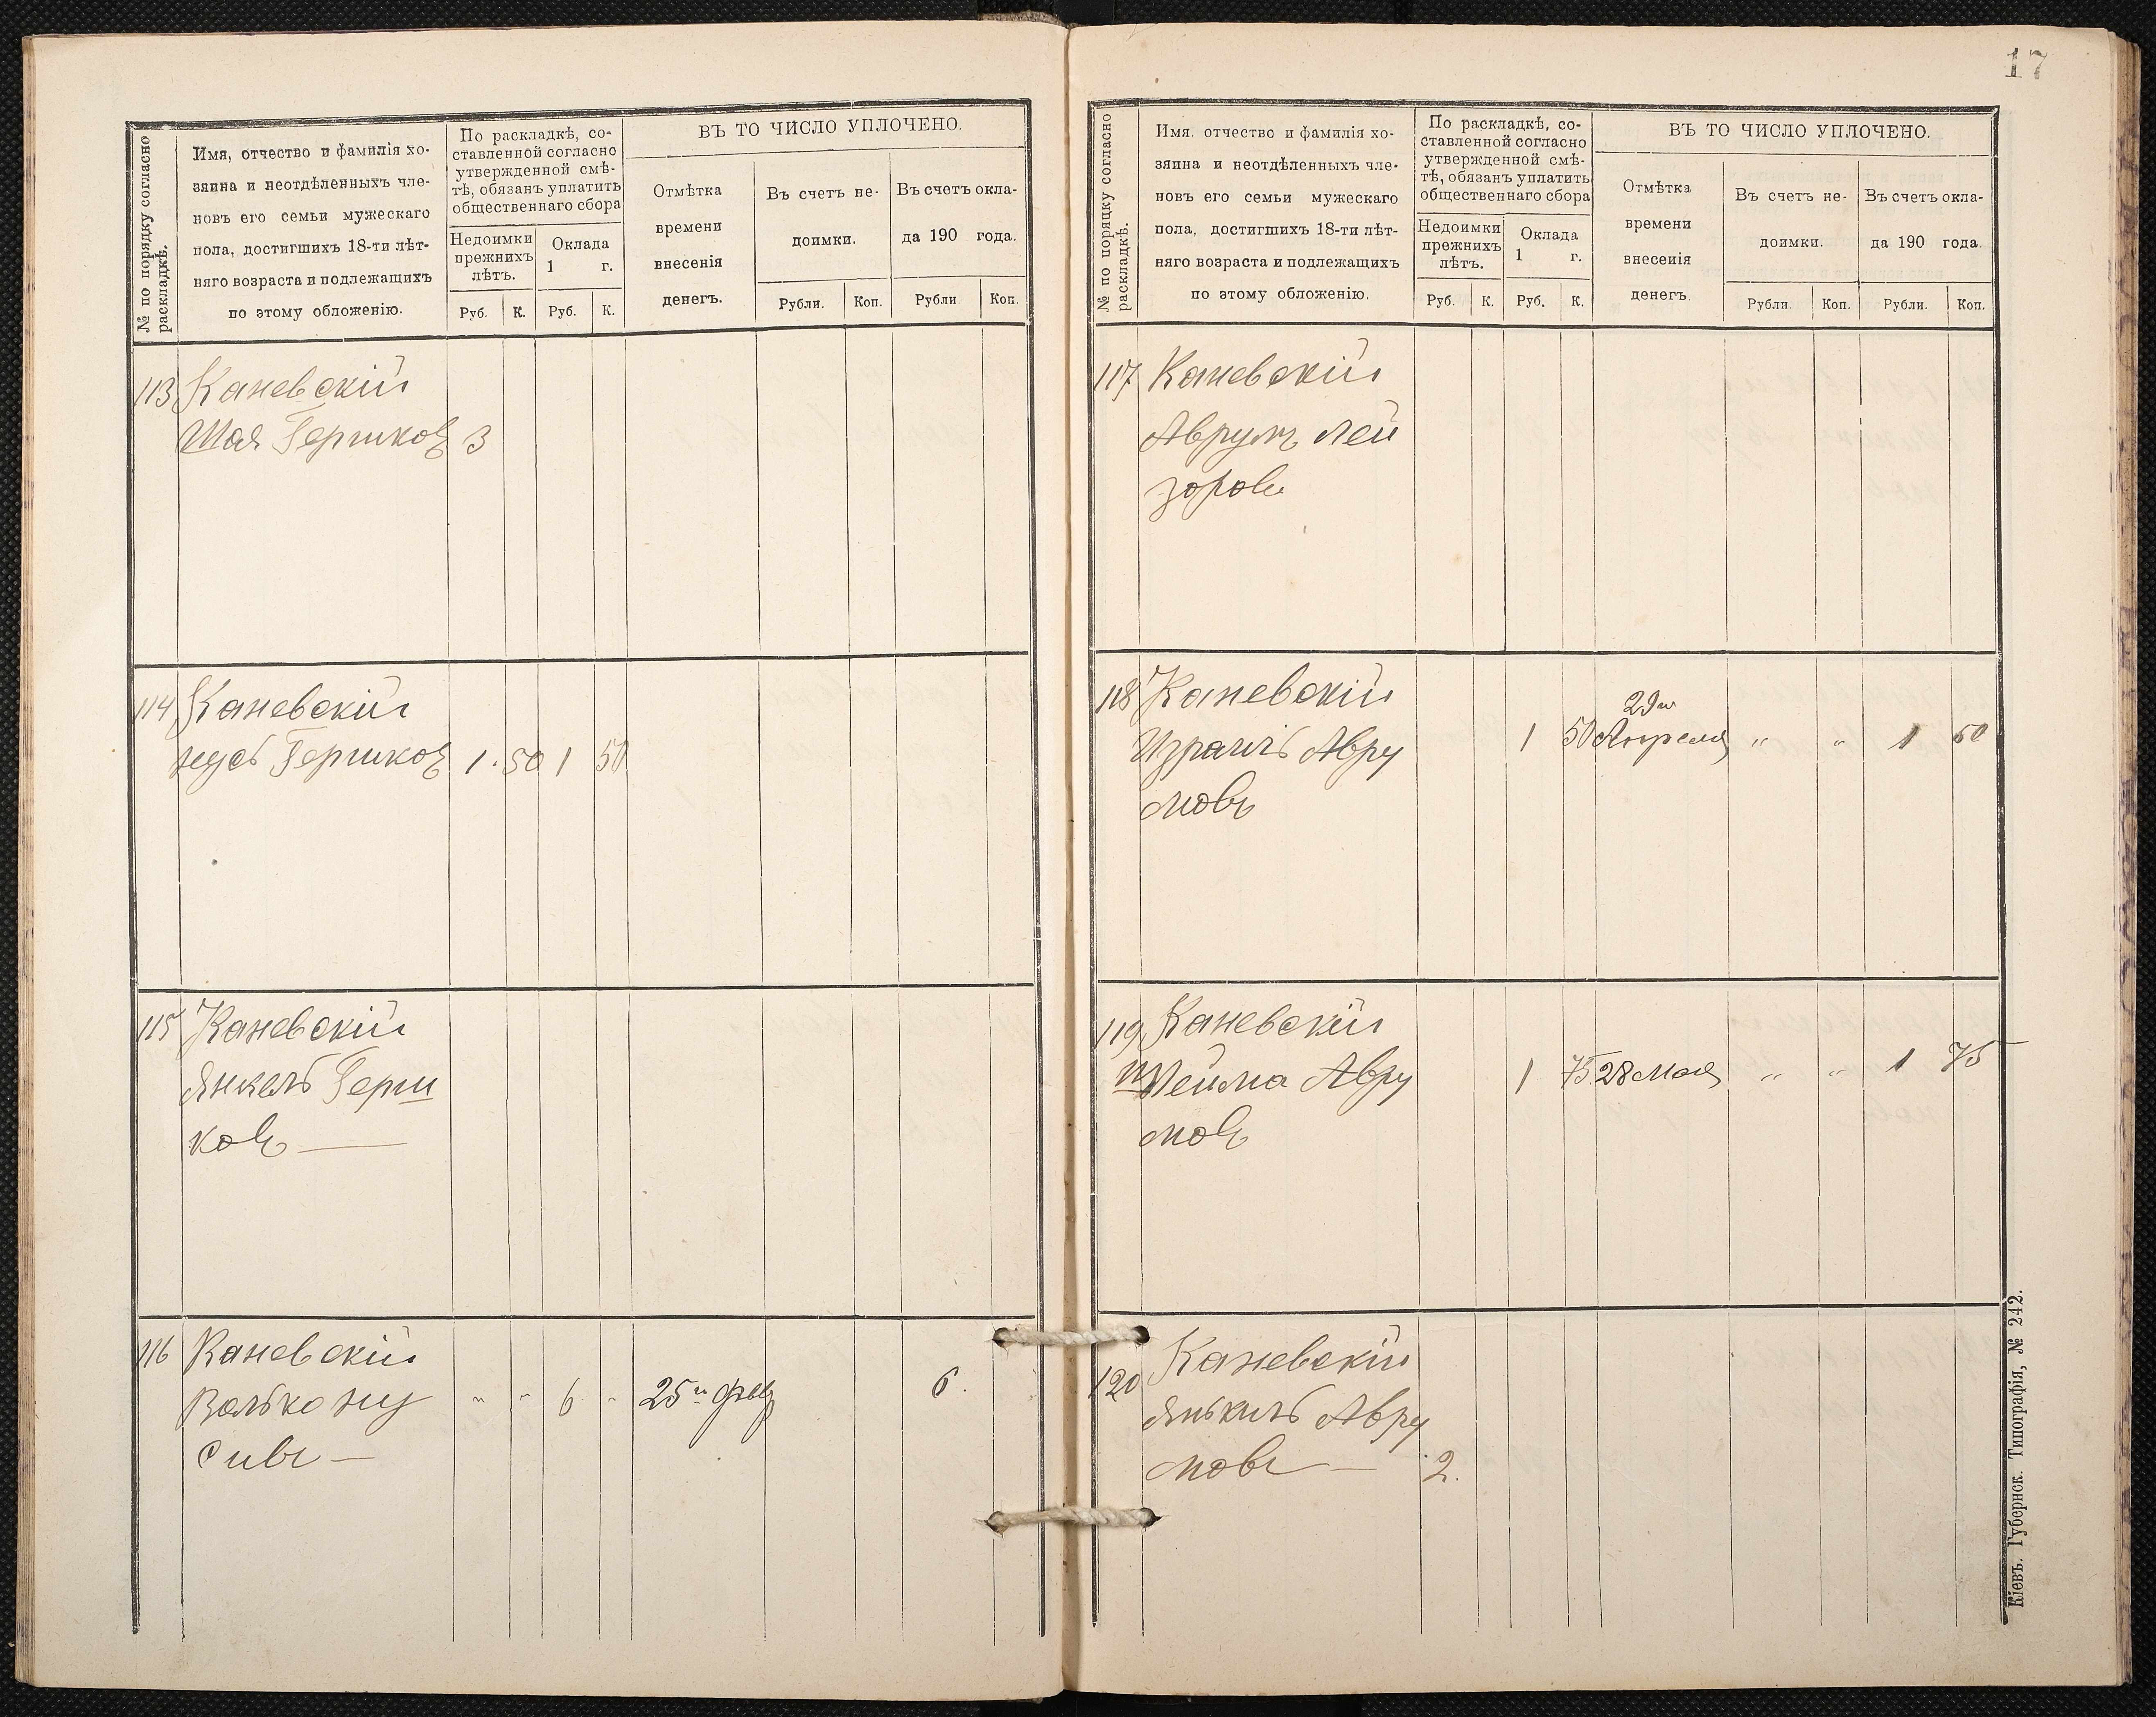 17
№ по порядку согласно
раскладкѣ.
Имя, отчество и фамилія хо-
зяина и неотдѣленныхъ чле-
новъ его семьи мужескаго
пола, достигшихъ 18-ти лѣт-
няго возраста и подлежащихъ
по этому обложенію.
По раскладкѣ, со-
ставленной согласно
утвержденной смѣ-
тѣ, обязанъ уплатить
общественнаго сбора
Недоимки
прежнихъ
лѣтъ.
Оклада
1 г.
Руб. К. Руб. К.
ВЪ ТО ЧИСЛО УПЛОЧЕНО.
Отмѣтка
времени
внесенія
денегъ.
Въ счетъ не-
доимки.
Въ счетъ окла-
да 190 года.
Рубли. Коп. Рубли Коп.
113 Каневскій
Шая Гершковъ 3
114 Каневскій
Нусъ Гершковъ 1. 50 1 50
115 Каневскій
Янкель Герш
ковъ —
116 Каневскій
Волько Ну " " 6 " 25го фев 6.
сивъ —
№ по порядку согласно
раскладкѣ.
Имя, отчество и фамилія хо-
зяина и неотдѣленныхъ чле-
новъ его семьи мужескаго
пола, достигшихъ 18-ти лѣт-
няго возраста и подлежащихъ
по этому обложенію.
По раскладкѣ, со-
ставленной согласно
утвержденной смѣ-
тѣ, обязанъ уплатить
общественнаго сбора
Недоимки
прежнихъ
лѣтъ.
Оклада
1 г.
Руб. К. Руб. К.
ВЪ ТО ЧИСЛО УПЛОЧЕНО.
Отмѣтка
времени
внесенія
денегъ.
Въ счетъ не-
доимки.
Въ счетъ окла-
да 190 года.
Рубли. Коп. Рубли. Коп.
117 Каневскій
Аврумъ Лей
зоровъ
118 Каневскій 29го
Израиль Авру 1 50 Апреля " " 1 50
мовъ
119 Каневскій
Шейма Авру 1 75 28 Мая " " 1 75
мовъ
120 Каневскій
Янькиль Авру
мовъ — 2.
Кіевъ. Губернск. Типографія, № 242.